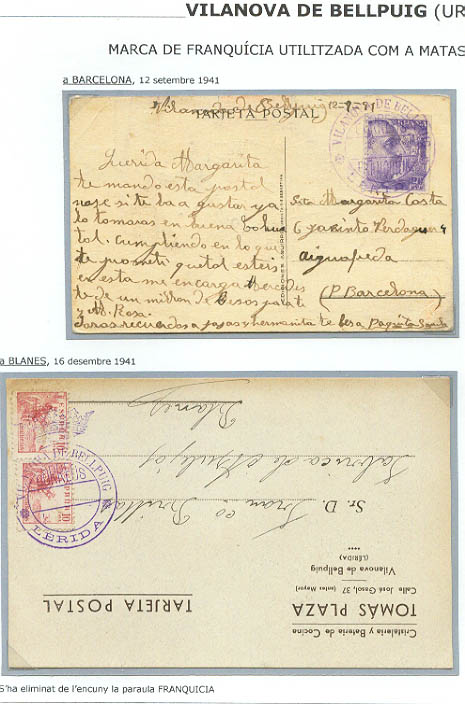 VILANOVA DE BELLPUIG (UR
MARCA DE FRANQUÍCIA UTILITZADA COM A MATAS
a BARCELONA, 12 setembre 1941
Vilanova de Bellpuig 12-9-41
TARJETA POSTAL
VILANOVA DE BELL
LERIDA
Querida Margarita
te mando esta postal
nose si te ba a gustar ya
lo tomaras en buena
tal. Cumpliendo en lo que
te prometi quetal esteis
en esta me encarga Mercedes
te de un millon de besos para ti
y M. Rosa.
daras recuerdos a papas y hermanita te besa Paquita
Srta Margarita Costa
C Jacinto Verdaguer 4
Aiguafreda
(P Barcelona)
a BLANES, 16 desembre 1941
CORREOS
DE BELLPUIG
LERIDA
TARJETA POSTAL
Cristalería y Batería de Cocina
TOMÁS PLAZA
Calle José Gesol, 37 (antes Mayor)
Vilanova de Bellpuig
(LÉRIDA)
Sr. D.
Fabrica de
Blanes
S'ha eliminat de l'encuny la paraula FRANQUICIA